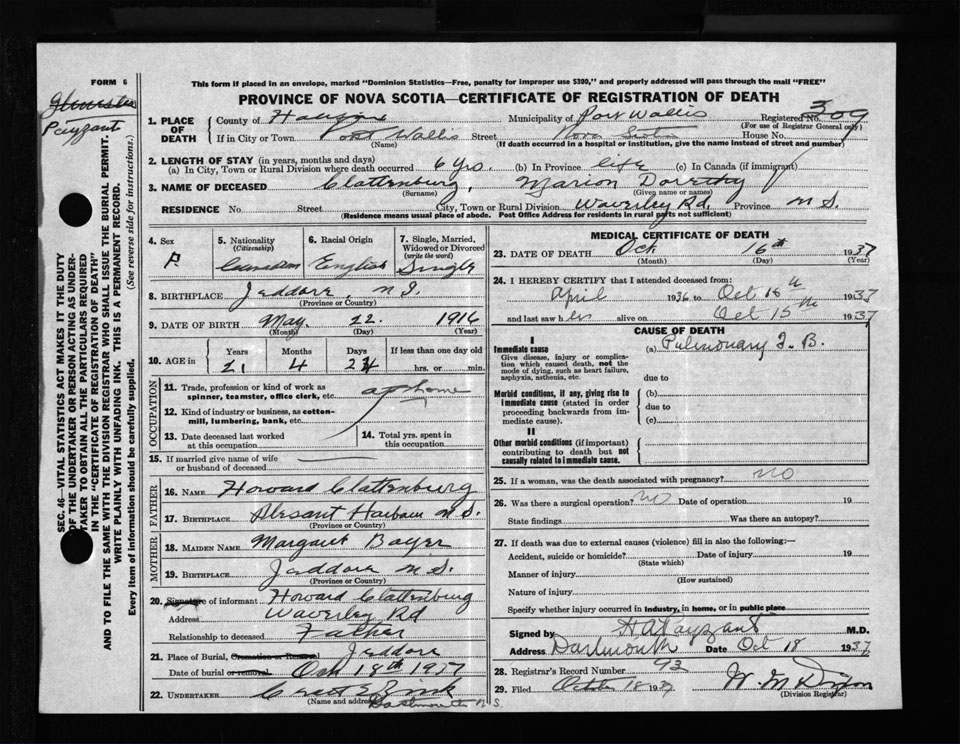 FORM 6
This form if placed in an envelope, marked "Dominion Statistics—Free, penalty for improper use $300," and properly addressed will pass through the mail "FREE"
Payzant
PROVINCE OF NOVA SCOTIA—CERTIFICATE OF REGISTRATION OF DEATH
SEC. 46—VITAL STATISTICS ACT MAKES IT THE DUTY
OF THE UNDERTAKER OR PERSON ACTING AS UNDER-
TAKER TO OBTAIN ALL THE PARTICULARS REQUIRED
IN THE "CERTIFICATE OF REGISTRATION OF DEATH"
AND TO FILE THE SAME WITH THE DIVISION REGISTRAR WHO SHALL ISSUE THE BURIAL PERMIT.
WRITE PLAINLY WITH UNFADING INK. THIS IS A PERMANENT RECORD.
Every item of information should be carefully supplied. (See reverse side for instructions.)
1. PLACE OF DEATH County of Halifax Municipality of Port Wallis Registered No. 309
(For use of Registrar General only)
If in City or Town Port Wallis Street Nova Scotia House No.
(Name) (If death occurred in a hospital or institution, give the name instead of street and number)
2. LENGTH OF STAY (in years, months and days)
(a) In City, Town or Rural Division where death occurred 6 yrs. (b) In Province life (c) In Canada (if immigrant)
3. NAME OF DECEASED Clattenburg, Marion Dorothy
(Surname) (Given name or names)
RESIDENCE No Street City, Town or Rural Division Waverley Rd. Province N S.
(Residence means usual place of abode. Post Office Address for residents in rural parts not sufficient)
4. Sex F.
5. Nationality (Citizenship) Canadian
6. Racial Origin English
7. Single, Married, Widowed or Divorced (write the word) Single
8. BIRTHPLACE Jeddore, N.S.
(Province or Country)
9. DATE OF BIRTH May 22. 1916
(Month) (Day) (Year)
10. AGE in Years 21 Months 4 Days 24 If less than one day old
hrs. or min.
OCCUPATION
11. Trade, profession or kind of work as spinner, teamster, office clerk, etc. at home
12. Kind of industry or business, as cotton-mill, lumbering, bank, etc.
13. Date deceased last worked at this occupation
14. Total yrs. spent in this occupation
15. If married give name of wife or husband of deceased
FATHER
16. NAME Howard Clattenburg
17. BIRTHPLACE Plesant Harbour N.S.
(Province or Country)
MOTHER
18. MAIDEN NAME Margaret Bayer
19. BIRTHPLACE Jeddore N S.
(Province or Country)
20. Signature of informant Howard Clattenburg
Address Waverley Rd
Relationship to deceased Father
21. Place of Burial, Cremation or Removal Jeddore
Date of burial or removal Oct 18th 1937
22. UNDERTAKER Zink
(Name and address) Dartmouth N S.
MEDICAL CERTIFICATE OF DEATH
23. DATE OF DEATH Oct 16th 1937
(Month) (Day) (Year)
24. I HEREBY CERTIFY that I attended deceased from:
April 1936 to Oct 1937
and last saw her alive on Oct 15th 1937
CAUSE OF DEATH
I
Immediate cause (a) Pulmonary T. B.
Give disease, injury or complica-
tion which caused death, not the
mode of dying, such as heart failure,
asphyxia, asthenia, etc. due to
Morbid conditions, if any, giving rise to (b)
immediate cause (stated in order due to
proceeding backwards from im-
mediate cause). (c)
II
Other morbid conditions (if important)
contributing to death but not
causally related to immediate cause.
25. If a woman, was the death associated with pregnancy? NO
26. Was there a surgical operation? NO Date of operation 19
State findings Was there an autopsy?
27. If death was due to external causes (violence) fill in also the following:—
Accident, suicide or homicide? Date of injury 19
(State which)
Manner of injury
(How sustained)
Nature of injury
Specify whether injury occurred in industry, in home, or in public place
Signed by H A Payzant M.D.
Address Dartmouth Date Oct 18 1937
28. Registrar's Record Number 93
29. Filed October 18 1937 W. M Dixon
(Division Registrar)